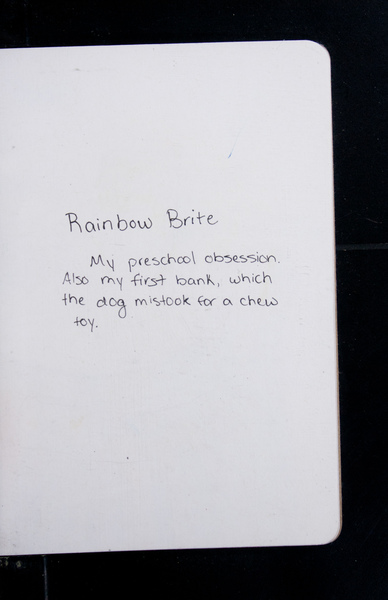 Rainbow Brite
My preschool obsession.
Also my first bank, which
the dog mistook for a chew
toy.